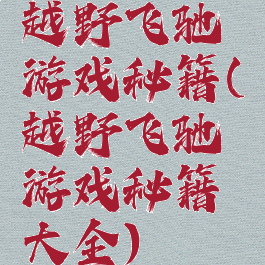 越野飞驰
游戏秘籍(
越野飞驰
游戏秘籍
大全)